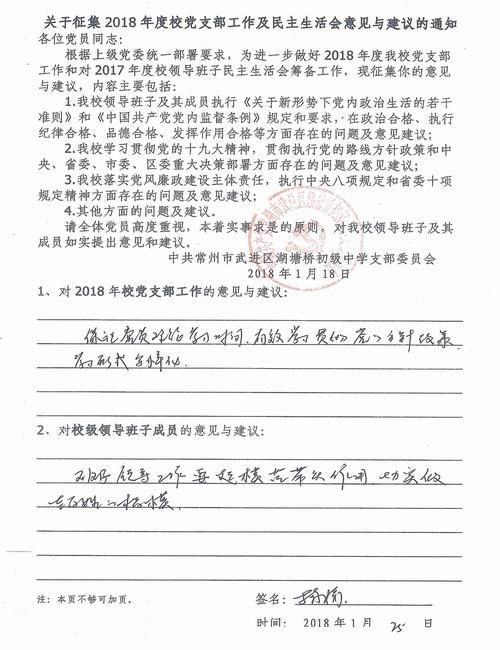 关于征集 2018 年度校党支部工作及民主生活会意见与建议的通知
各位党员同志：
根据上级党委统一部署要求，为进一步做好 2018 年度我校党支部
工作和对 2017 年度校领导班子民主生活会筹备工作，现征集你的意见
与建议，内容主要包括：
1.我校领导班子及其成员执行《关于新形势下党内政治生活的若干
准则》和《中国共产党党内监督条例》规定和要求，在政治合格、执行
纪律合格、品德合格、发挥作用合格等方面存在的问题及意见建议；
2.我校学习贯彻党的十九大精神，贯彻执行党的路线方针政策和中
央、省委、市委、区委重大决策部署方面存在的问题及意见建议；
3.我校落实党风廉政建设主体责任，执行中央八项规定和省委十项
规定精神方面存在的问题及意见建议；
4.其他方面的问题及建议。
请全体党员高度重视，本着实事求是的原则，对我校领导班子及其
成员如实提出意见和建议。
中共常州市武进区湖塘桥初级中学支部委员会
2018 年 1 月 18 日
1、对 2018 年校党支部工作的意见与建议：
保证党员政治学习时间，有效学习党的方针政策，
学习形式多样化。
2、对校级领导班子成员的意见与建议：
领导工作要起模范带头作用 切实做
注：本页不够可加页。
签名：
时间： 2018 年 1 月 25 日